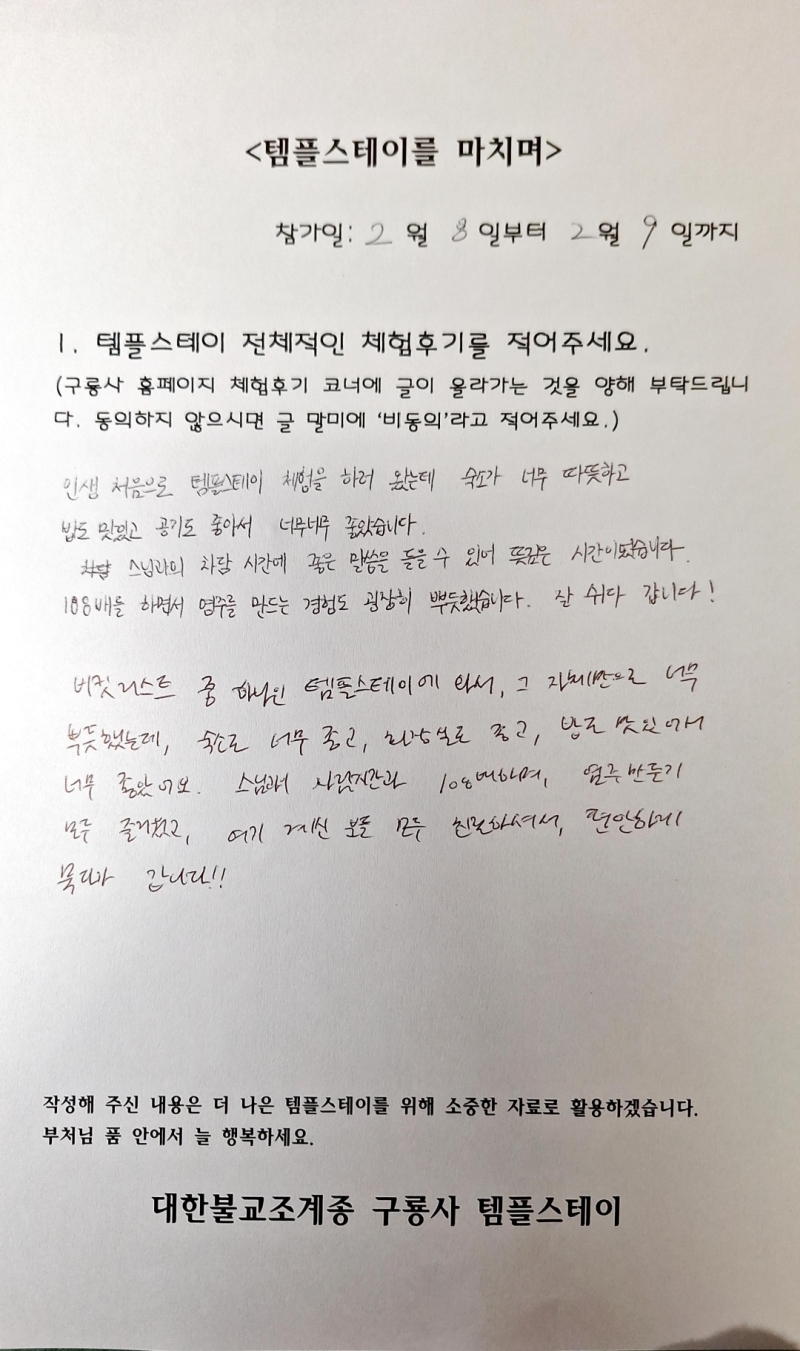 <템플스테이를 마치며>
참가일: 2 월 8 일부터 2 월 9 일까지
1. 템플스테이 전체적인 체험후기를 적어주세요.
(구룡사 홈페이지 체험후기 코너에 글이 올라가는 것을 양해 부탁드립니
다. 동의하지 않으시면 글 말미에 '비동의'라고 적어주세요.)
인생 처음으로 템플스테이 체험을 하러 왔는데 숙소가 너무 따뜻하고
밥도 맛있고 공기도 좋아서 너무너무 좋았습니다.
스님과의 차담 시간에 좋은 말씀을 들을 수 있어 뜻깊은 시간이었습니다.
108배를 하면서 염주를 만드는 경험도 굉장히 뿌듯했습니다. 잘 쉬다 갑니다!
버킷리스트 중 하나인 템플스테이에 와서, 그 자체만으로 너무
뿌듯했는데, 숙소도 너무 좋고, 화장실도 좋고, 밥도 맛있어서
너무 좋았어요. 스님과의 시간과 108배하며, 염주만들기
모두 즐거웠고, 여기 계신 분들 모두 친절하셔서, 편안하게
묵다가 갑니다!!
작성해 주신 내용은 더 나은 템플스테이를 위해 소중한 자료로 활용하겠습니다.
부처님 품 안에서 늘 행복하세요.
대한불교조계종 구룡사 템플스테이